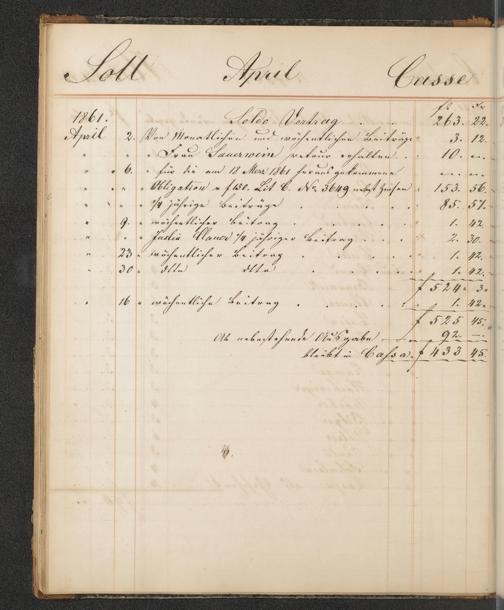 Soll April Casse
fr. Xr.
1861. Saldo Vortrag . . . 263. 22.
April 2. Von Monatlichen und wöchentlichen Beiträge 3. 12.
" " " Frau Sauerwein retour erhalten . . 10. —
" " 6. " für die am 18 März 1861 herausgekommene — —
" " " Obligation a f 150. Lit C. No. 3649 nebst Zinsen 153. 56.
" " " 1/4 jährige Beiträge . . . 85. 57.
" 9. " wöchentlicher Beitrag . . . 1. 42.
" " " 1/4 jähriger Beitrag . . . 2. 30.
" 23 " wöchentlicher Beitrag . . . 1. 42.
" 30 " dtto dtto . . . 1. 42.
f 524. 3.
" 16 " wöchentliche Beitrag . . . 1. 42.
f 525 45.
Ab nebenstehende Ausgabe 92. —
bleibt in Cassa. f 433 45.